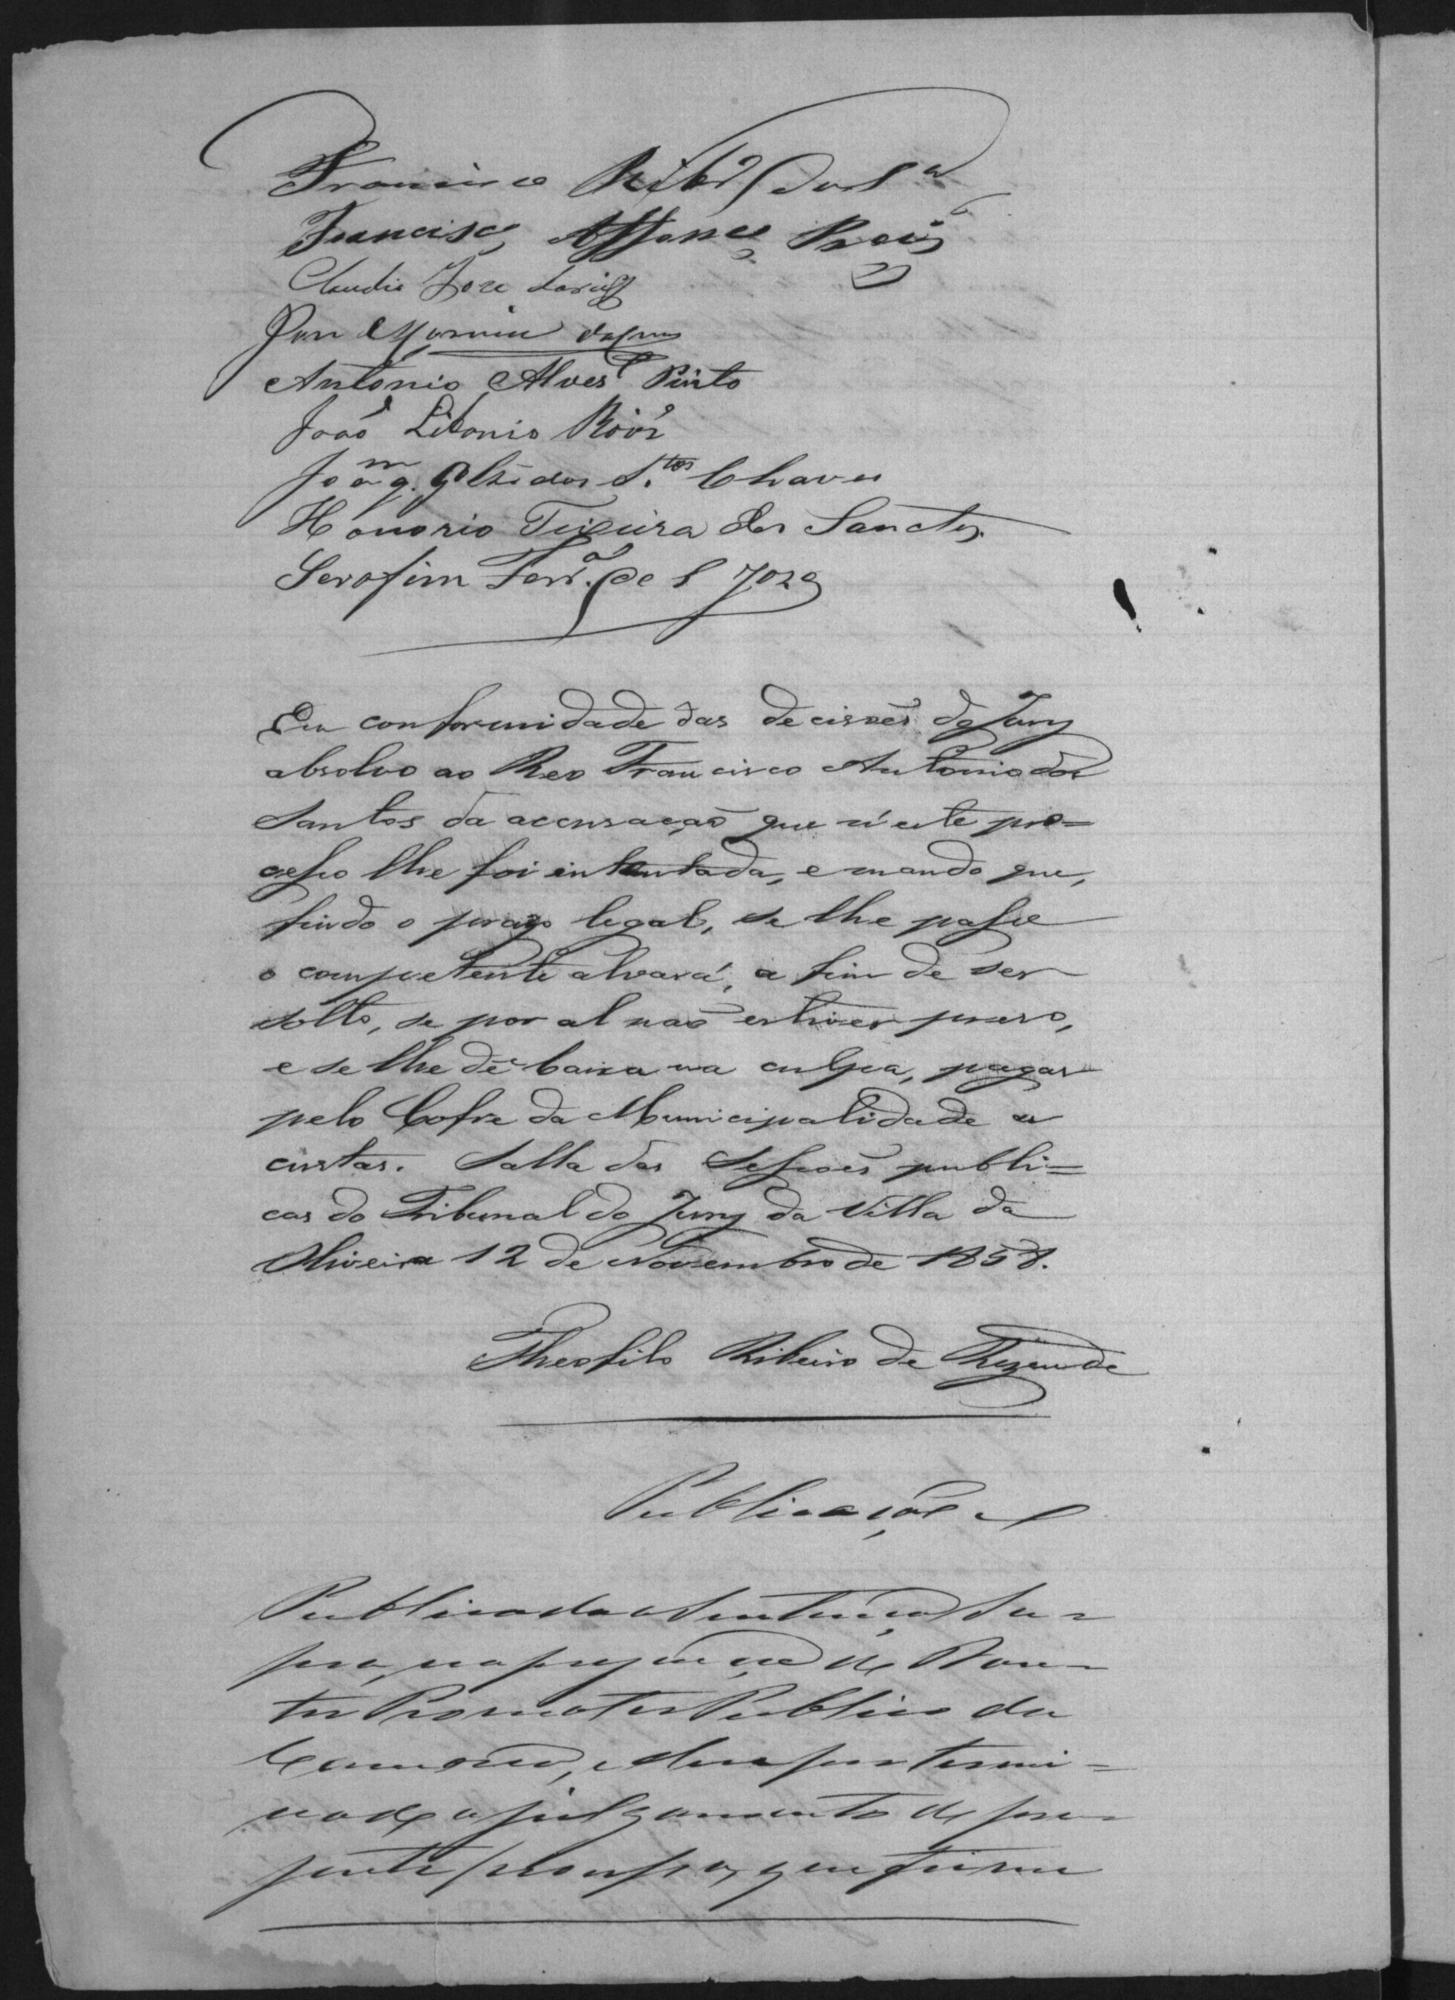 Francisco Ribrº da S.ª
Francisco Affonço
Claudio Joze
Antonio Alves Pinto
João Libanio
Joaqm. dos S.tos Chaves
Honorio Teixeira dos Sanctos
Serafim Ferrª. de S Joze
Em conformidade das decisões do Jury
absolvo ao Reo Francisco Antonio dos
Santos da accusação que n'este pro=
cesso lhe foi intentada, e mando que,
findo o prazo legal, se lhe passe
o competente alvará, a fim de ser
solto, se por al não estiver preso,
e se lhe dê baixa na culpa, pagas
pelo Cofre da Municipalidade as
custas. Salla das Sessoẽs publi=
cas do Tribunal do Jury da Villa da
Oliveira 12 de Novembro de 1858.
Theofilo Ribeiro de Rezende
Publicação
Publicada a Sentença Su=
pra, na prezença do Dou=
tor Promotor Publico da
Comarca, e dessa por termi=
nado o julgamento do pre=
zente processo, que firma